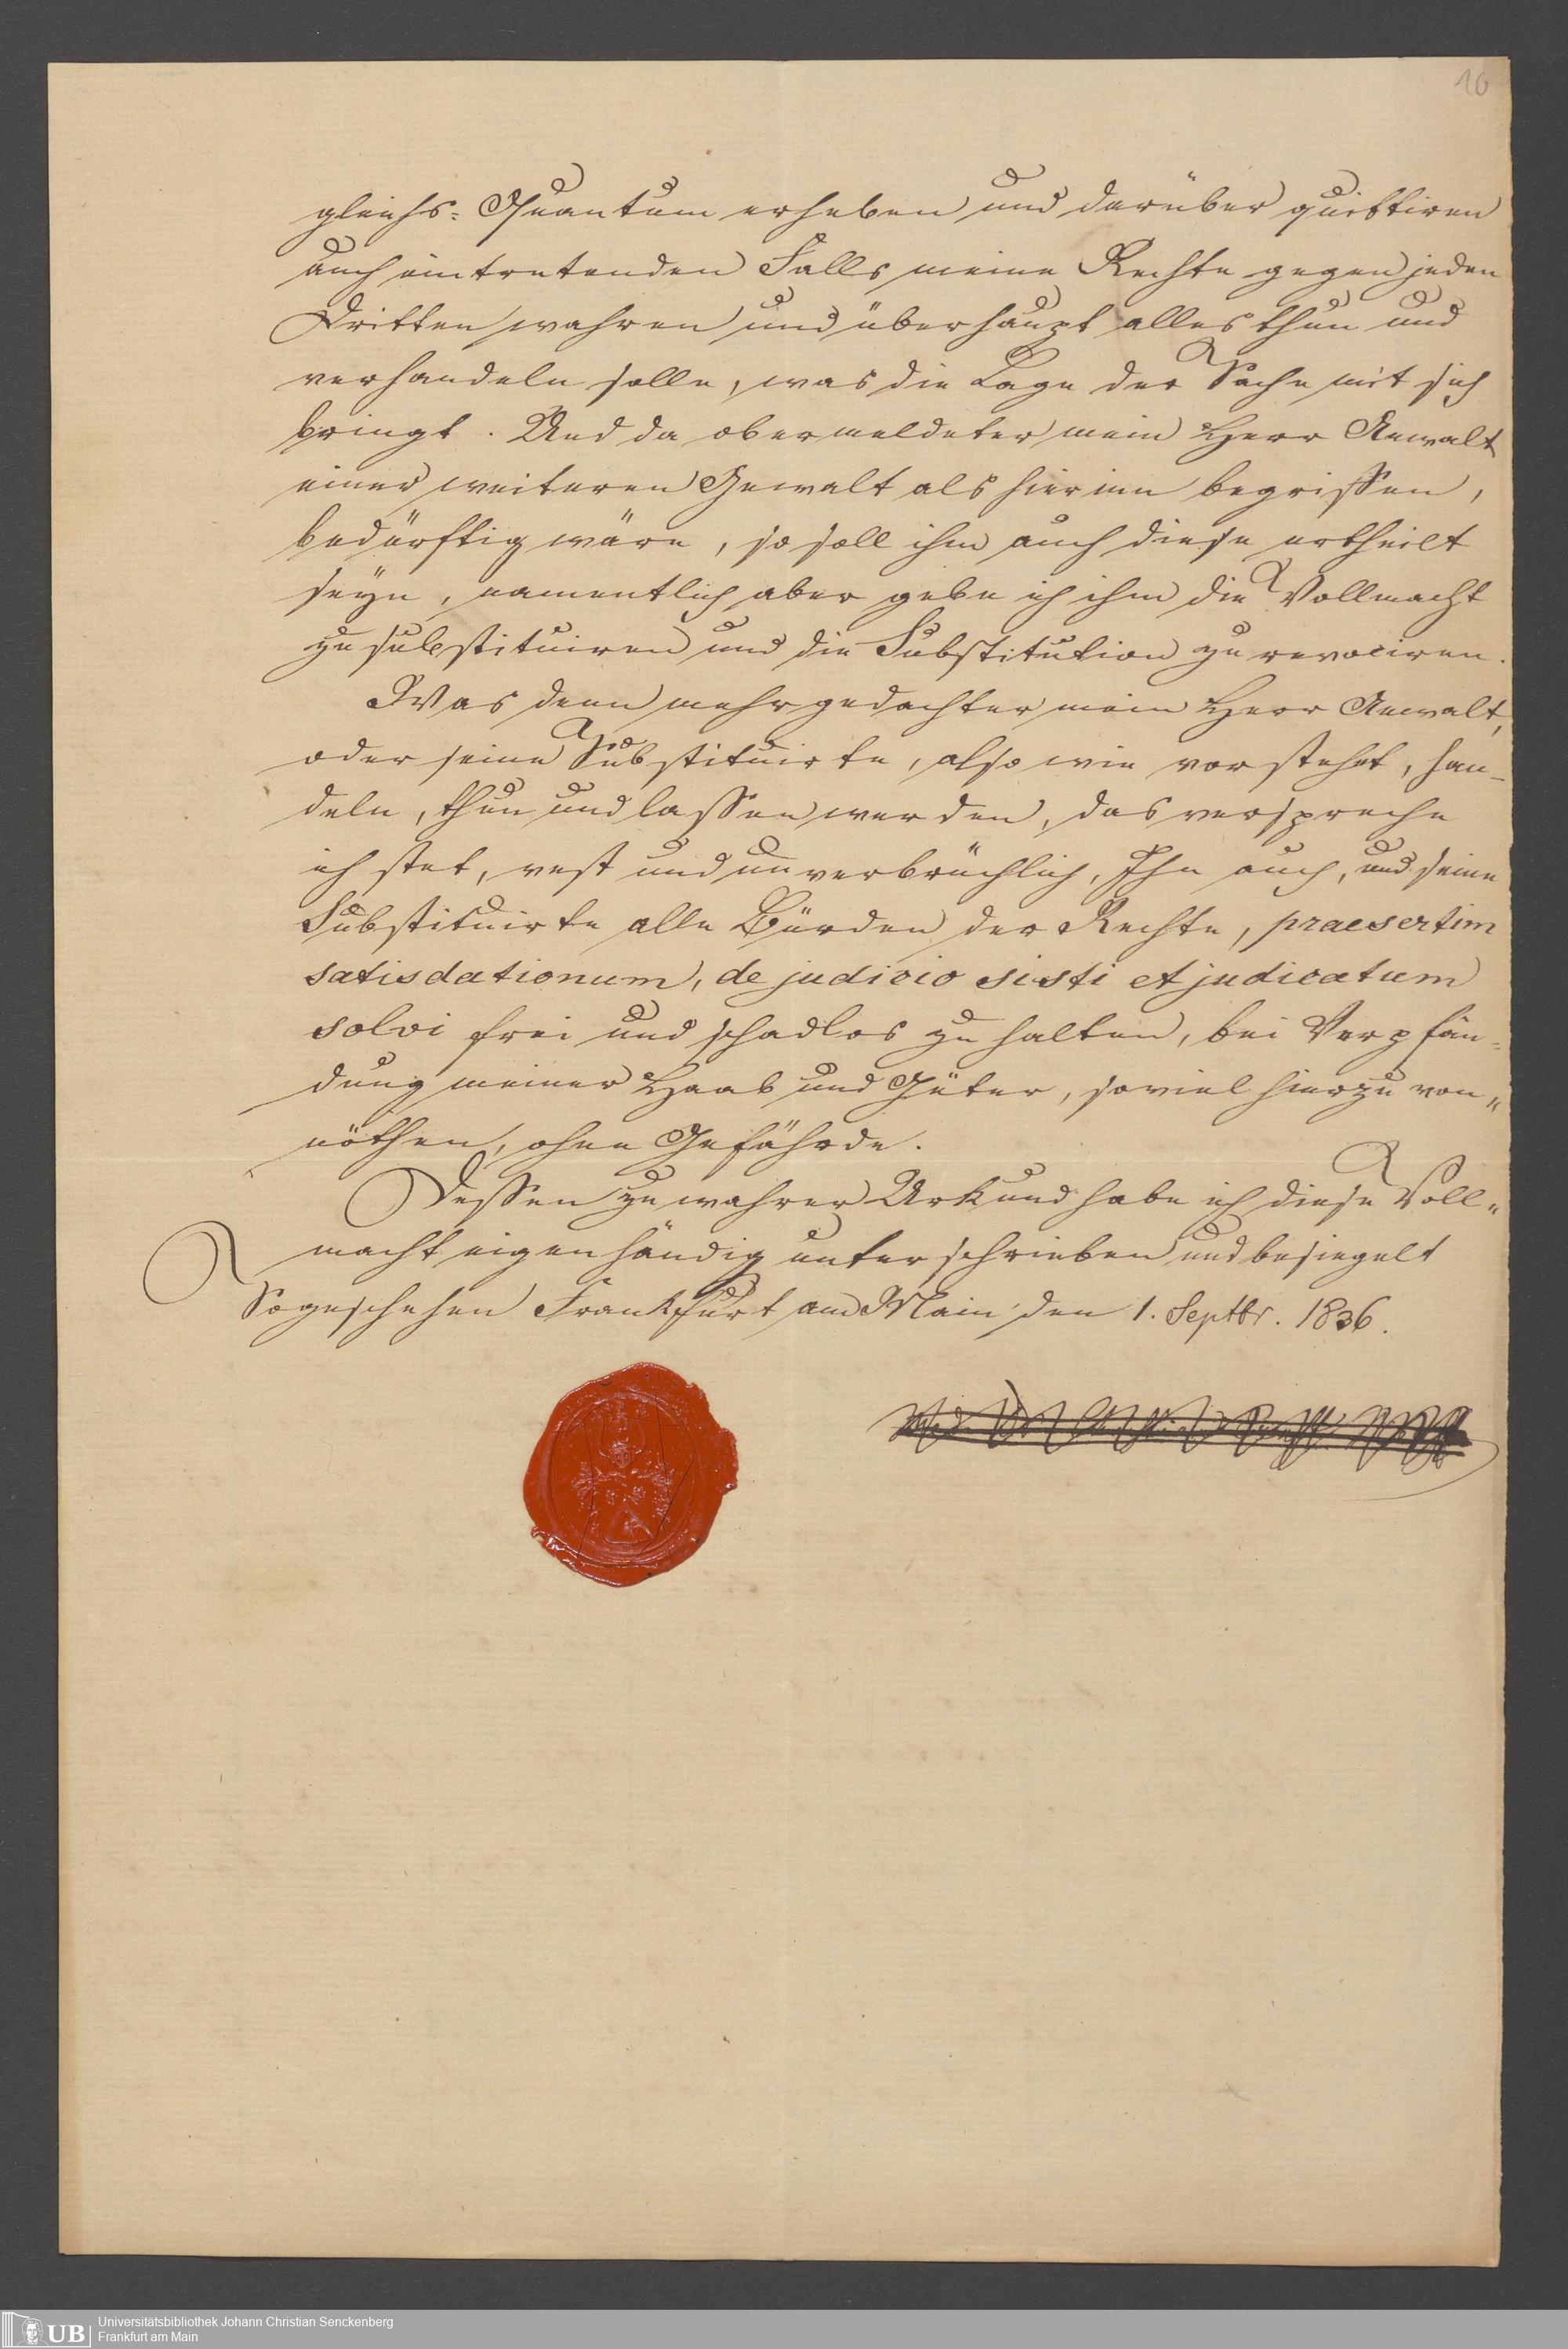 10
gleichs-Quantum erheben und darüber quittiren
auch eintretenden Falls meine Rechte gegen jeden
Dritten wahren und überhaupt alles thun und
verhandeln solle, was die Lage der Sache mit sich
bringt. Und da obermeldeter mein Herr Anwalt
einer weiteren Gewalt als hierinn begriffen,
bedürftig wäre, so soll ihm auch diese ertheilt
seyn, namentlich aber gebe ich ihm die Vollmacht
zu substituiren und die Substitution zu revociren.
Was denn mehrgedachter mein Herr Anwalt,
oder seine Substituirte, also wie vorsteht, han-
deln, thun und lassen werden, das verspreche
ich stet, vest und unverbrüchlich, Ihn auch, und seine
Substituirte alle Bürden der Rechte, praesertim
satisdationum, de judicio sisti et judicatum
solvi frei und schadlos zu halten, bei Verpfän-
dung meiner Haab und Güter, soviel hierzu von"
nöthen, ohne Gefährde.
Dessen zu wahrer Urkund habe ich diese Voll"
macht eigenhändig unterschrieben und besiegelt
So geschehen Frankfurt am Main den 1. Septbr. 1836.
UB
Universitätsbibliothek Johann Christian Senckenberg
Frankfurt am Main